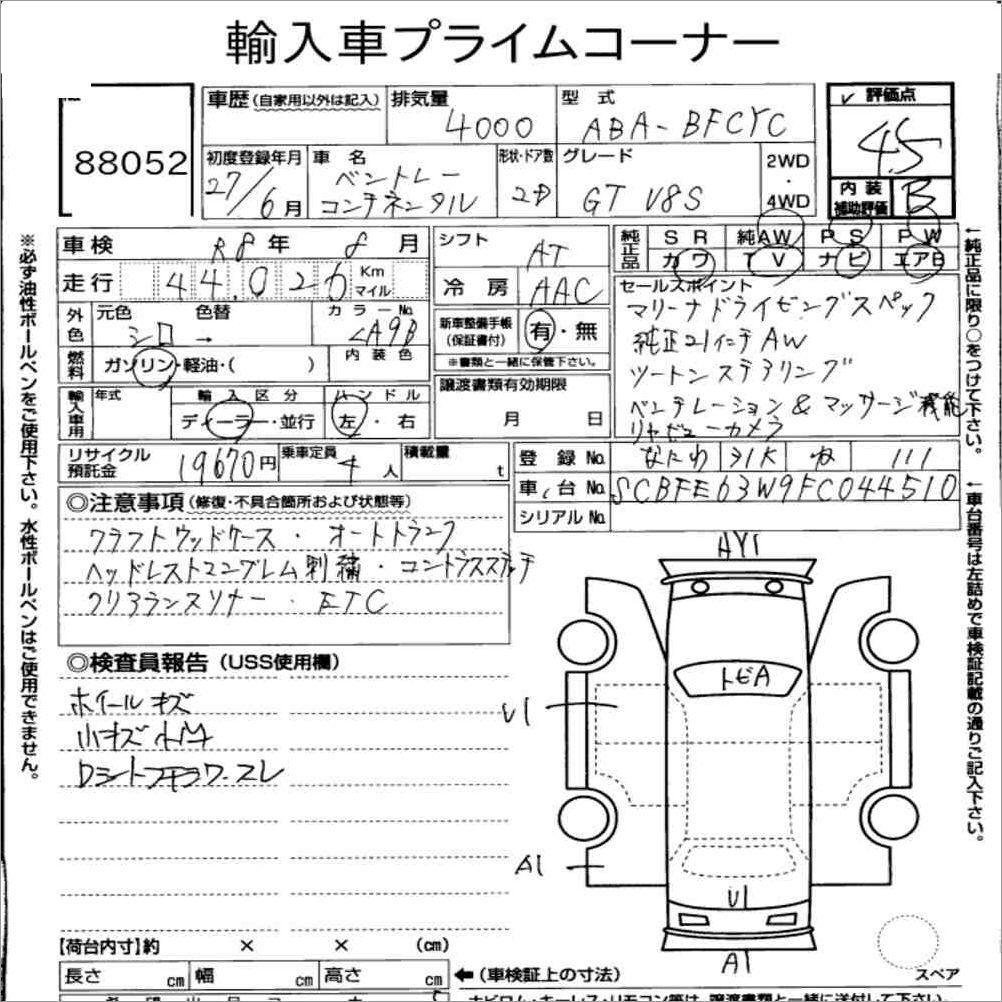 輸入車プライムコーナー
88052
車歴(自家用以外は記入) 排気量 4000 型式 ABA-BFCYC
評価点 4.5
初度登録年月 27/6月 車名 ベントレー コンチネンタル 形状・ドア数 2D グレード GT V8S 2WD・4WD
内装補助評価 B
車検 R8年 8月 シフト AT
走行 44.026 Km マイル 冷房 AAC
純正品 SR 純AW PS PW
カワ TV ナビ エアB
外色 元色 シロ 色替 → カラーNo. LA9B
新車整備手帳(保証書付) 有・無
※書類と一緒に保管下さい。
燃料 ガソリン・軽油・( ) 内装色
譲渡書類有効期限 月 日
輸入車用 年式 輸入区分 ディーラー・並行 ハンドル 左・右
セールスポイント
マリーナドライビングスペック
純正21インチAW
ツートンステアリング
ベンチレーション&マッサージ機能
リヤビューカメラ
リサイクル預託金 19670円 乗車定員 4人 積載量 t
登録No. なにわ 31K ね 111
車台No. SCBFE63W9FC044510
シリアルNo.
◎注意事項(修復・不具合箇所および状態等)
クラフトウッドケース・オートトランク
ヘッドレストエンブレム刺繍・コントラスステッチ
クリアランスソナー・ETC
◎検査員報告(USS使用欄)
ホイールキズ
小キズ小凹
Dシートフチラワ・スレ
AY1
トビA
U1
A1
U1
A1
スペア
【荷台内寸】約 × × (cm)
長さ cm 幅 cm 高さ cm
←(車検証上の寸法)
※必ず油性ボールペンをご使用下さい。水性ボールペンはご使用できません。
←純正品に限り○をつけて下さい。
←車台番号は左詰めで車検証記載の通りご記入下さい。